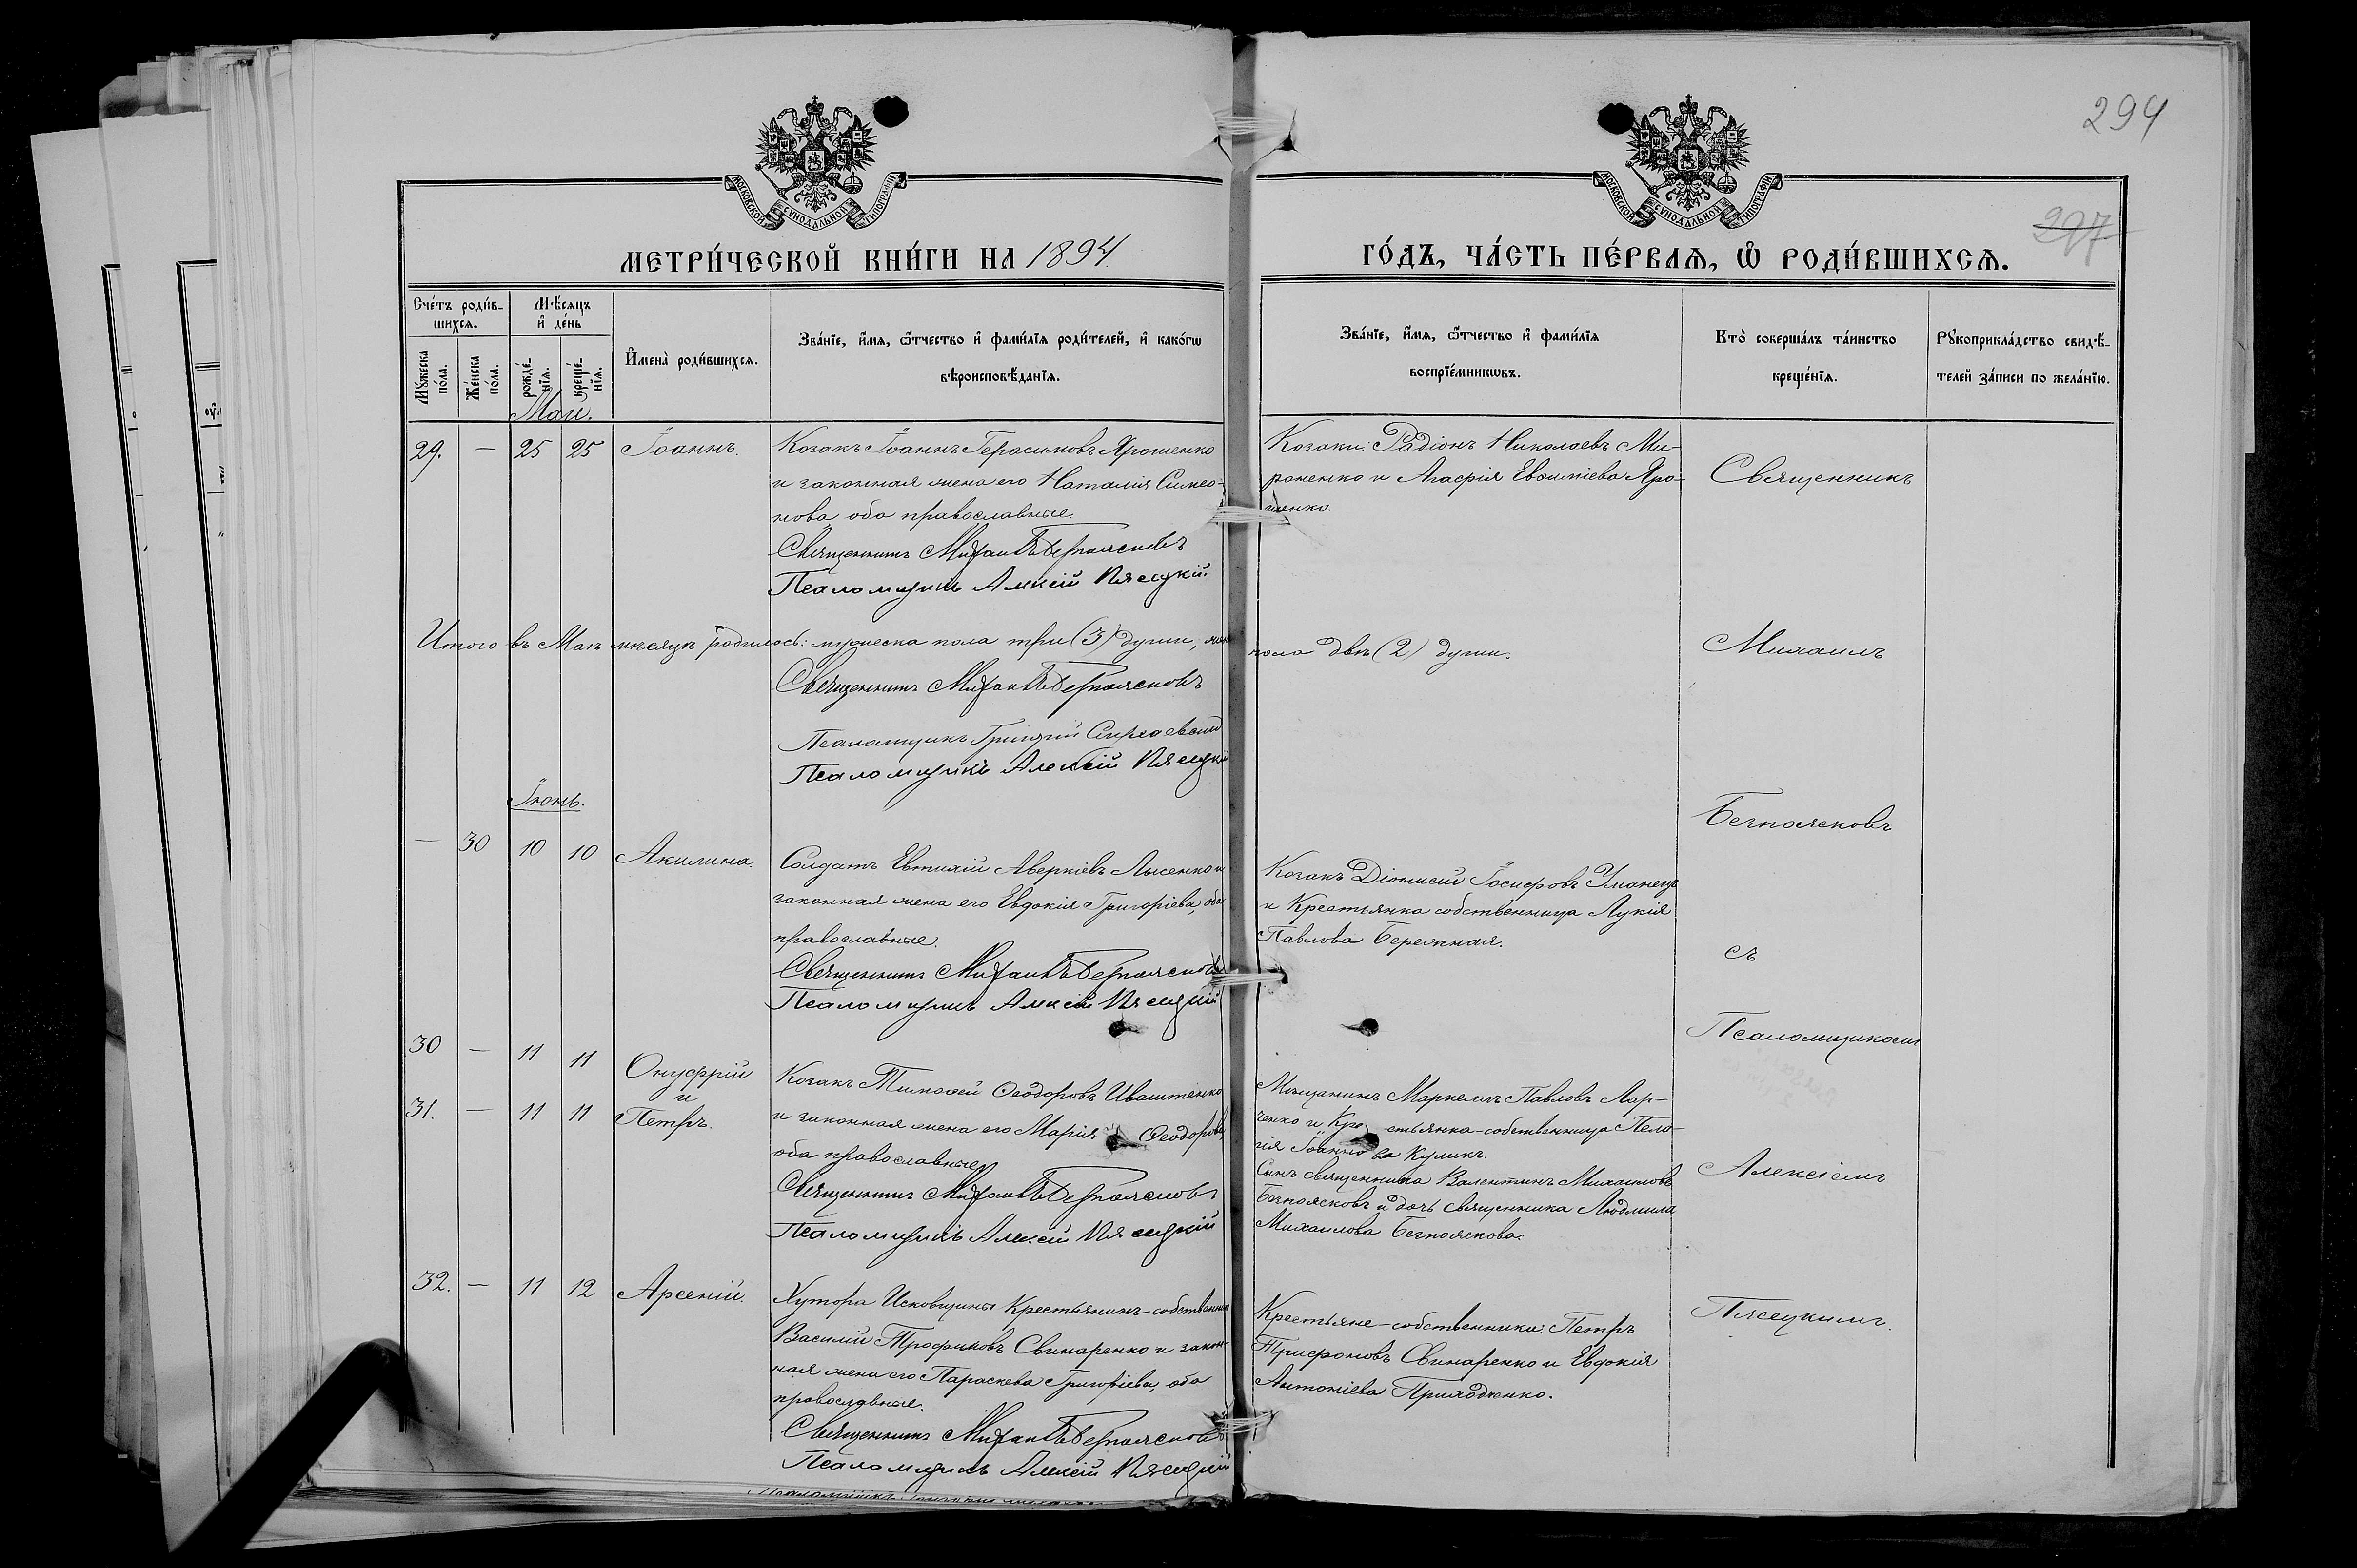 294
297
МОСКОВСКОЙ СѴНОДАЛЬНОЙ ТИПОГРАФІИ
МОСКОВСКОЙ СѴНОДАЛЬНОЙ ТИПОГРАФІИ
МЕТРИ́ЧЕСКОЙ КНИ́ГИ НА 1894.
ГО́ДЪ, ЧА́СТЬ ПЕ́РВАѦ, Ѡ РОДИ́ВШИХСѦ.
Сче́тъ роди́в-
шихсѧ.
Мꙋ́жеска по́ла.
Же́нска по́ла.
Мѣ́сѧцъ
и҆ де́нь
рожде́-
нїѧ.
креще́-
нїѧ.
И҆мена̀ роди́вшихсѧ.
Зва́нїе, и҆́мѧ, ѻ҆́тчество и҆ фами́лїѧ роди́телей, и҆ како́гѡ
вѣроисповѣ́данїѧ.
Зва́нїе, и҆́мѧ, ѻ҆́тчество и҆ фами́лїѧ
воспрїе́мникѡвъ.
Кто̀ соверша́лъ та́инство
креще́нїѧ.
Рꙋкоприкла́дство свидѣ́-
телей за́писи по жела́нїю.
Маи.
29. — 25 25 Іоаннъ.
Козакъ Іоаннъ Герасимовъ Ярошенко
и законная жена его Наталія Симео-
нова, оба православные.
Священникъ Михаилъ Безпоясковъ
Псаломщикъ Алексій Пясецкій
Козаки: Радіонъ Николаевъ Ми-
роненко и Агафія Евфиміева Яро-
шенко.
Итого въ Маѣ мѣсяцѣ родилось: мужеска пола три (3) души, жен
пола двѣ (2) души.
Священникъ Михаилъ Безпоясковъ
Псаломщикъ Григорій
Псаломщикъ Алексій Пясецкій
Іюнь.
— 30 10 10 Акилина.
Солдатъ Евтихій Аверкіевъ Лысенко и
законная жена его Евдокія Григоріева, оба
православные.
Священникъ Михаилъ Безпоясковъ
Псаломщикъ Алексій Пясецкій
Козакъ Діонисій Іосифовъ Уманецъ
и Крестьянка собственница Лукія
Павлова Бережная.
30 — 11 11 Онуфрій
и
31. — 11 11 Петръ.
Козакъ Тимофей Ѳеодоровъ Иваштенко
и законная жена его Марія Ѳеодорова,
оба православные.
Священникъ Михаилъ Безпоясковъ
Псаломщикъ Алексій Пясецкій
Мѣщанинъ Маркелъ Павловъ Лар-
ченко и Крестьянка-собственница Пела-
гія Іоаннова Куликъ.
Сынъ священника Валентинъ Михаиловъ
Безпоясковъ и дочь священника Людмила
Михаилова Безпояскова.
32. — 11 12 Арсеній.
Хутора Исковщины Крестьянинъ-собственникъ
Василій Трофимовъ Свинаренко и закон-
ная жена его Параскева Григоріева, оба
православные.
Священникъ Михаилъ Безпоясковъ
Псаломщикъ Алексій Пясецкій
Крестьяне-собственники: Петръ
Трифоновъ Свинаренко и Евдокія
Антоніева Приходченко.
Священникъ
Михаилъ
Безпоясковъ
съ
Псаломщикомъ
Алексіемъ
Пясецкимъ.